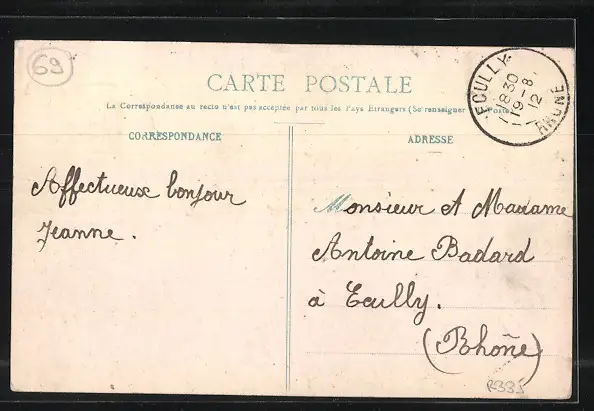 69
CARTE POSTALE
La Correspondance au recto n'est pas acceptée par tous les Pays Etrangers (Se renseigner à la Poste)
CORRESPONDANCE
ADRESSE
ECULLY
8 30
19 - 8
12
RHONE
Affectueux bonjour
Jeanne.
Monsieur et Madame
Antoine Badard
à Ecully.
(Rhône)